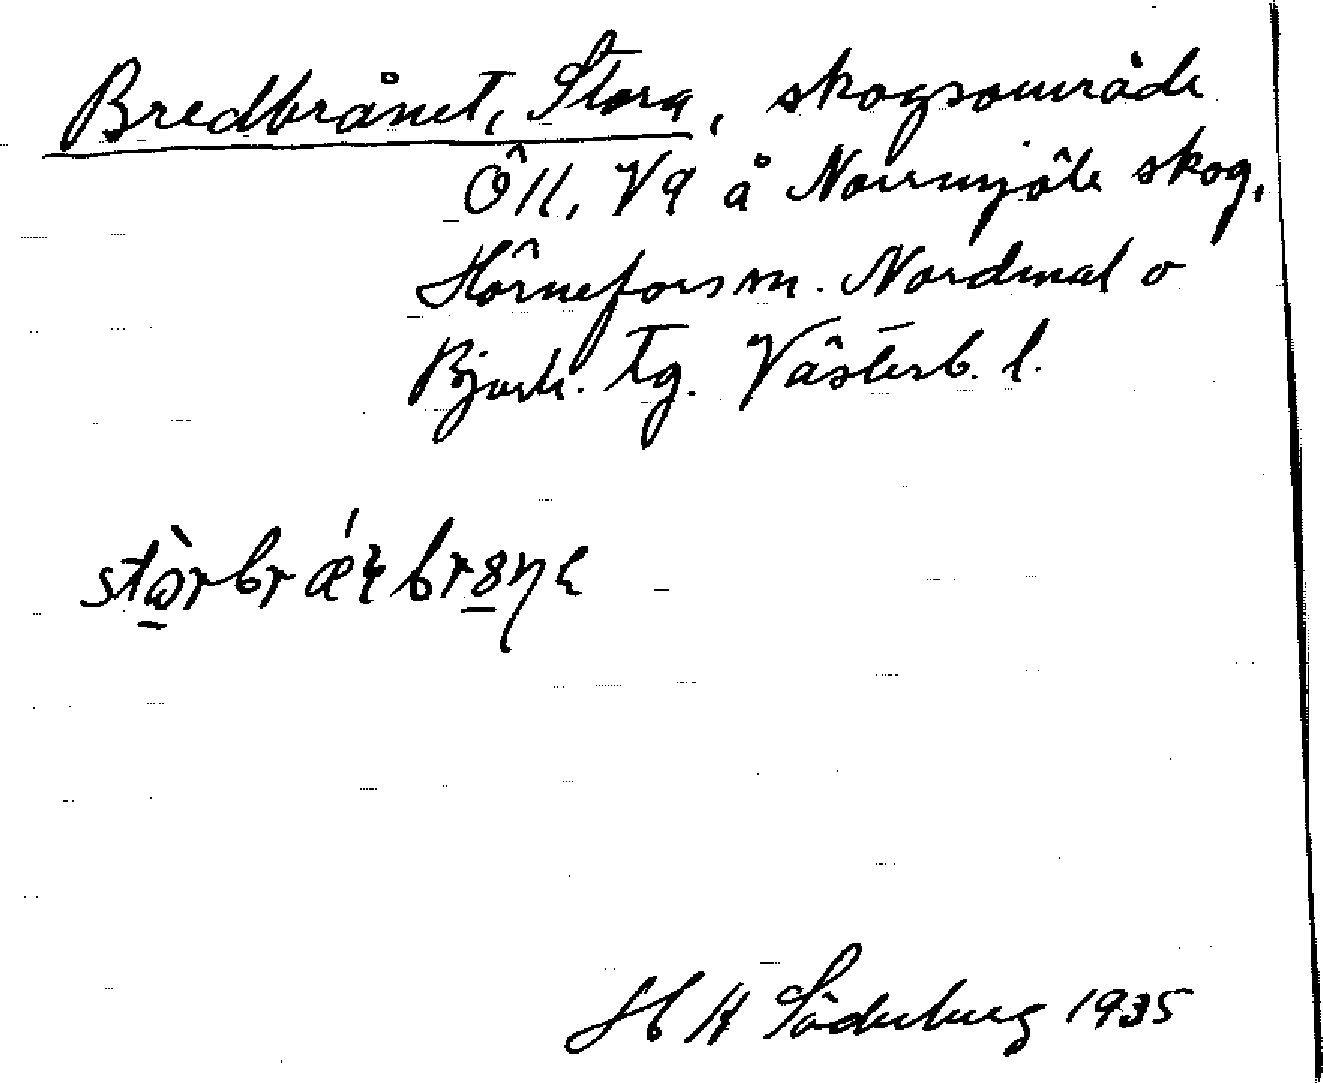 Bredbrånet, Stora, skogsområde
Ö11, V9 å Norrmjöle skog,
Hörnefors sn. Nordmal o
Bjurh. tg. Västerb. l.
H H Söderberg 1935